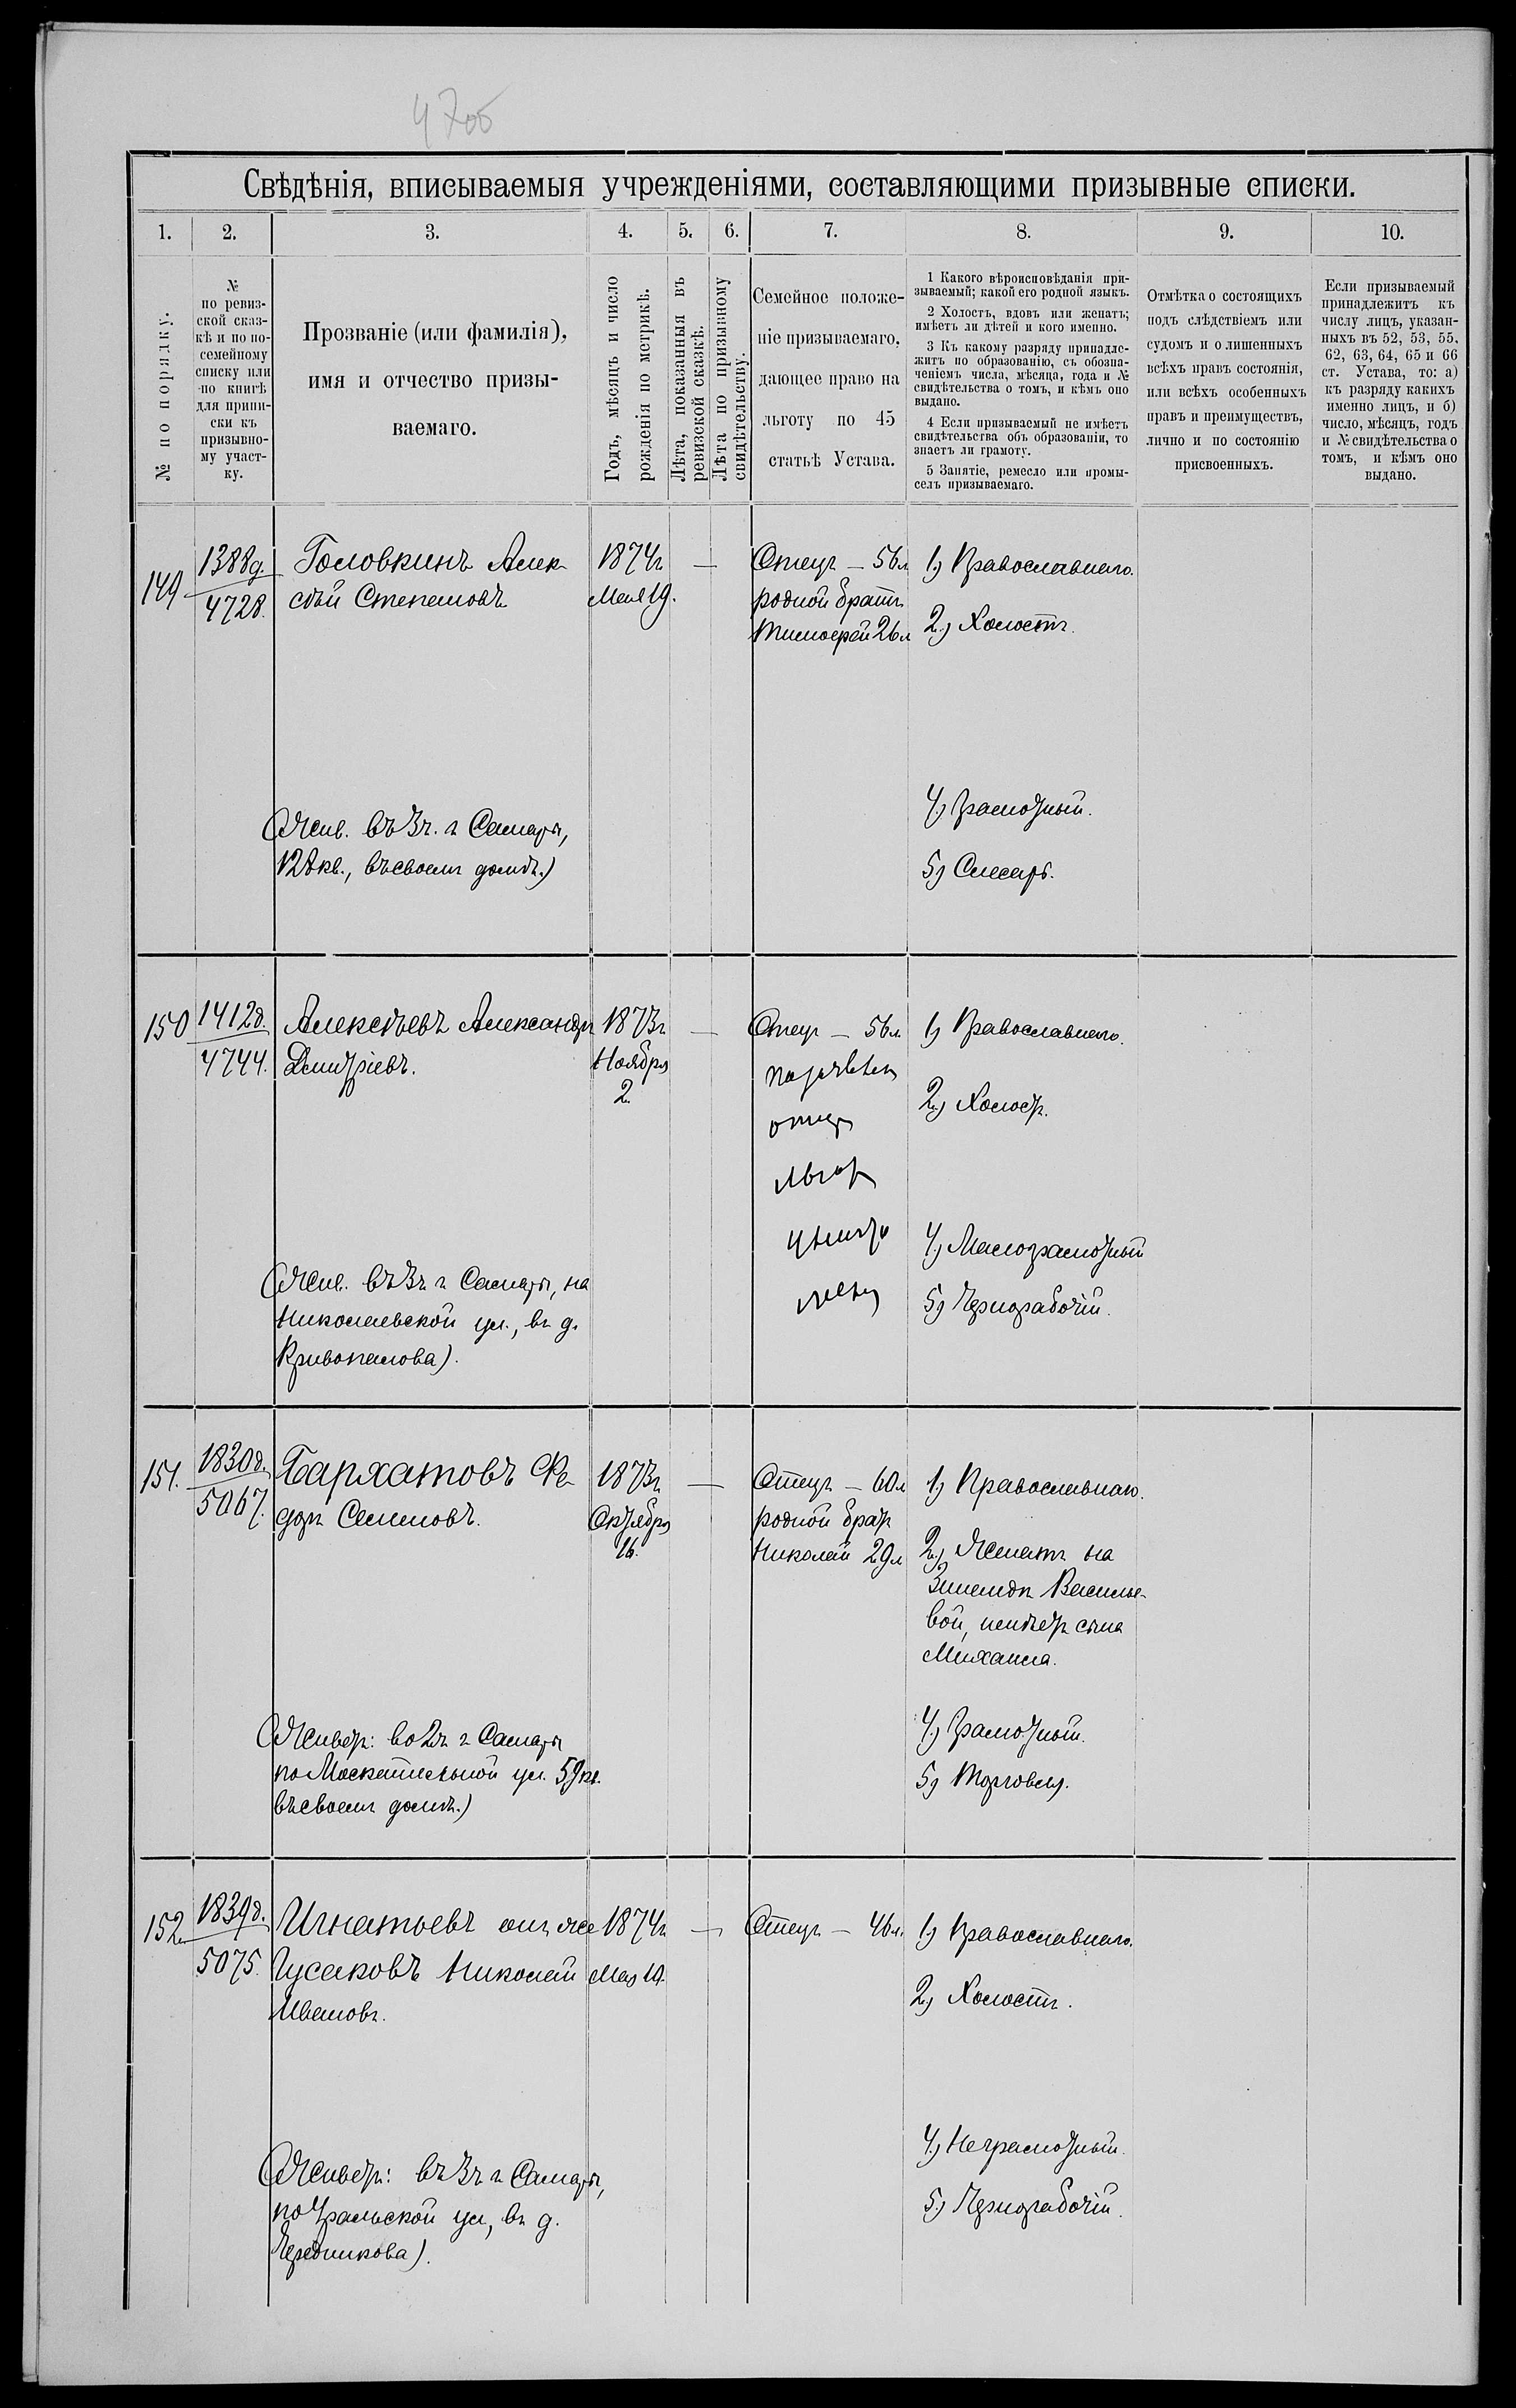 4700
Свѣдѣнія, вписываемыя учрежденіями, составляющими призывные списки.
1. 2. 3. 4. 5. 6. 7. 8. 9. 10.
№ по порядку.
№
по ревиз-
ской сказ-
кѣ и по по-
семейному
списку или
по книгѣ
для припи-
ски къ
призывно-
му участ-
ку.
Прозваніе (или фамилія),
имя и отчество призы-
ваемаго.
Годъ, мѣсяцъ и число
рожденія по метрикѣ.
Лѣта, показанныя въ
ревизской сказкѣ.
Лѣта по призывному
свидѣтельству.
Семейное положе-
ніе призываемаго,
дающее право на
льготу по 45
статьѣ Устава.
1 Какого вѣроисповѣданія при-
зываемый; какой его родной языкъ.
2 Холостъ, вдовъ или женатъ;
имѣетъ ли дѣтей и кого именно.
3 Къ какому разряду принадле-
житъ по образованію, съ обозна-
ченіемъ числа, мѣсяца, года и №
свидѣтельства о томъ, и кѣмъ оно
выдано.
4 Если призываемый не имѣетъ
свидѣтельства объ образованіи, то
знаетъ ли грамоту.
5 Занятіе, ремесло или промы-
селъ призываемаго.
Отмѣтка о состоящихъ
подъ слѣдствіемъ или
судомъ и о лишенныхъ
всѣхъ правъ состоянія,
или всѣхъ особенныхъ
правъ и преимуществъ,
лично и по состоянію
присвоенныхъ.
Если призываемый
принадлежитъ къ
числу лицъ, указан-
ныхъ въ 52, 53, 55,
62, 63, 64, 65 и 66
ст. Устава, то: а)
къ разряду какихъ
именно лицъ, и б)
число, мѣсяцъ, годъ
и № свидѣтельства о
томъ, и кѣмъ оно
выдано.
149
1388д.
4728.
Головкинъ Алек-
сѣй Степановъ
1874г
Мая 19.
—
Отецъ — 56л
родной братъ
Тимофей 26л
1) Православнаго.
2) Холостъ.
4) Грамотный.
5) Слесарь.
(Жив. въ 3ч. г Самары,
128кв., въ своемъ домѣ.)
150
1412д.
4744.
Алексѣевъ Александръ
Дмитріевъ.
1873г
Ноября
2.
—
Отецъ — 56л
отецъ
1) Православнаго.
2) Холостъ.
4) Малограмотный
5) Чернорабочій.
(Жив. въ 3ч г Самары, на
Николаевской ул., въ д.
Кривопалова).
151.
1830д.
5067.
Бархатовъ Фе-
доръ Семеновъ.
1873г
Октября
16.
—
Отецъ — 60л
родной братъ
Николай 29л
1) Православнаго.
2) Женатъ на
Зинаидѣ Василье-
вой, имѣетъ сына
Михаила.
4) Грамотный.
5) Торговля.
(Живетъ: во 2ч г Самары
по Москательной ул. 59кв.
въ своемъ домѣ.)
152
1839д.
5075.
Игнатьевъ онъ же
Гусаковъ Николай
Ивановъ.
1874г
Мая 19.
—
Отецъ — 46л.
1) Православнаго.
2) Холостъ.
4) Неграмотный.
5) Чернорабочій.
(Живетъ: въ 3ч г Самары,
по Уральской ул, въ д.
Чередникова).